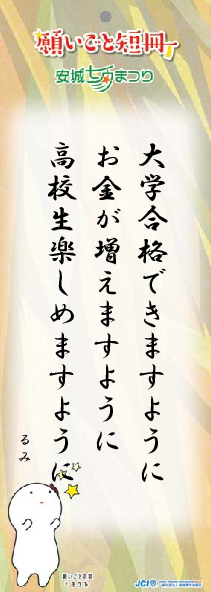 願いごと短冊
安城七夕まつり
大学合格できますように
お金が増えますように
高校生楽しめますように
るみ
願いごと短冊
JCI